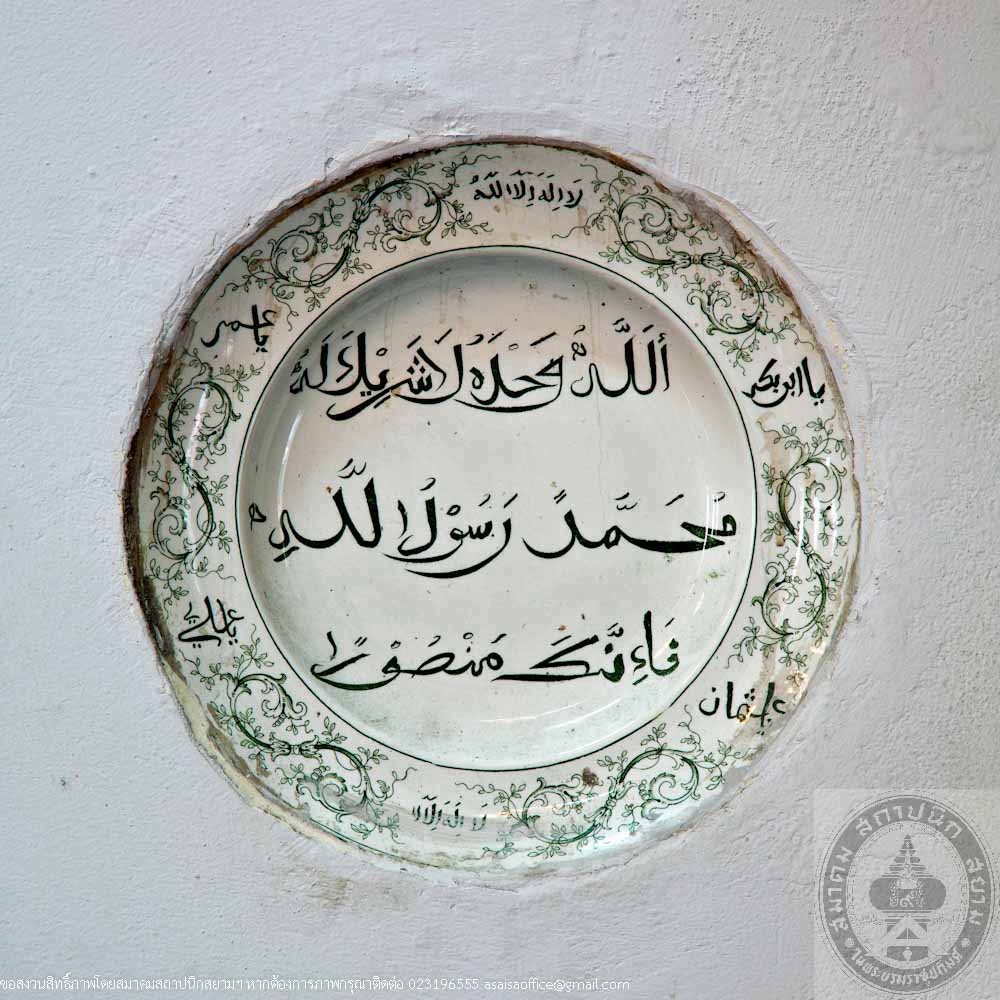 لَا اِلَهَ اِلَّا اللَّهُ
يا ابو بكر
يا عمر
أَللَّهُ وَحْدَهُ لَا شَرِيْكَ لَهُ
مُحَمَّدً رَسُوْلُ اللَّهِ
فَاءِنَّكَ مَنْصُوْرًا
يا علي
يا عثمان
لا اله الا
สมาคม สถาปนิก สยาม
ในพระบรมราชูปถัมภ์
ขอสงวนสิทธิ์ภาพโดยสมาคมสถาปนิกสยามฯ หากต้องการภาพกรุณาติดต่อ 023196555 asaisaoffice@gmail.com